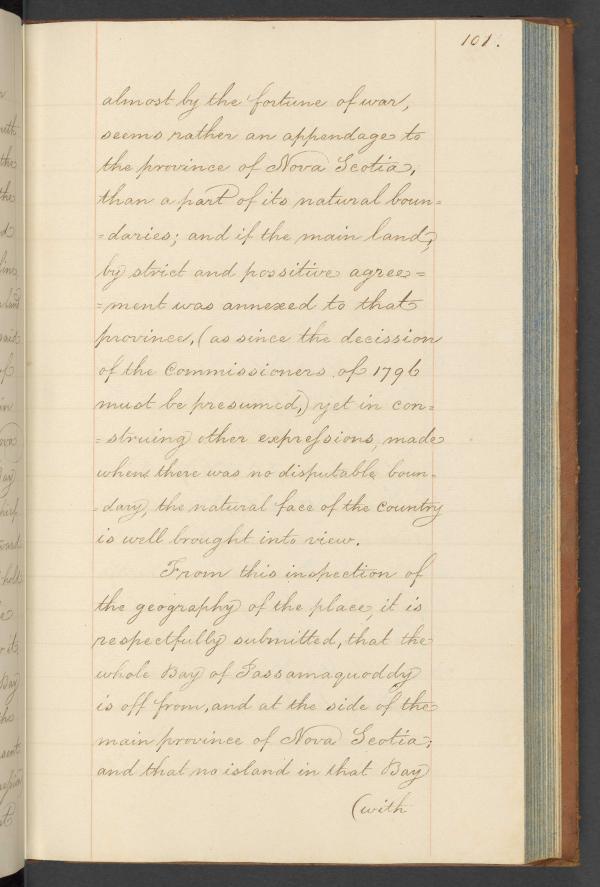 101.
almost by the fortune of war,
seems rather an appendage to
the province of Nova Scotia,
than a part of its natural boun=
=daries; and if the main land,
by strict and possitive agree=
=ment was annexed to that
province, (as since the decission
of the Commissioners of 1796
must be presumed,) yet in con=
=struing other expressions, made
when there was no disputable boun-
-dary, the natural face of the country
is well brought into view.
From this inspection of
the geography of the place, it is
respectfully submitted, that the
whole Bay of Passamaquoddy
is off from, and at the side of the
main province of Nova Scotia;
and that no island in that Bay
(with